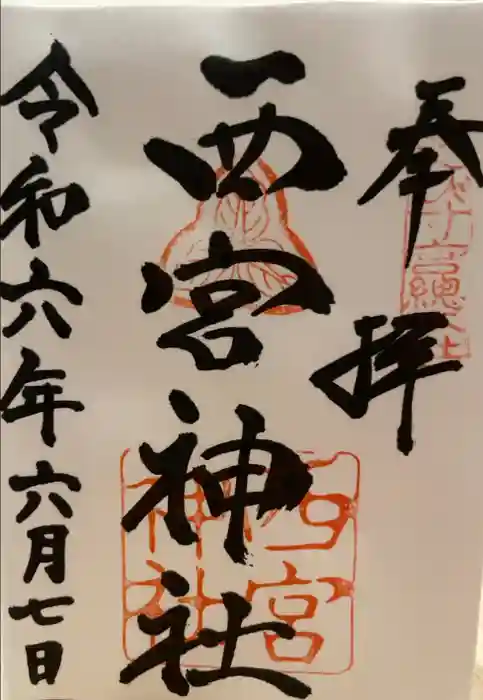 奉拝
西宮神社
令和六年六月七日
西宮
神社